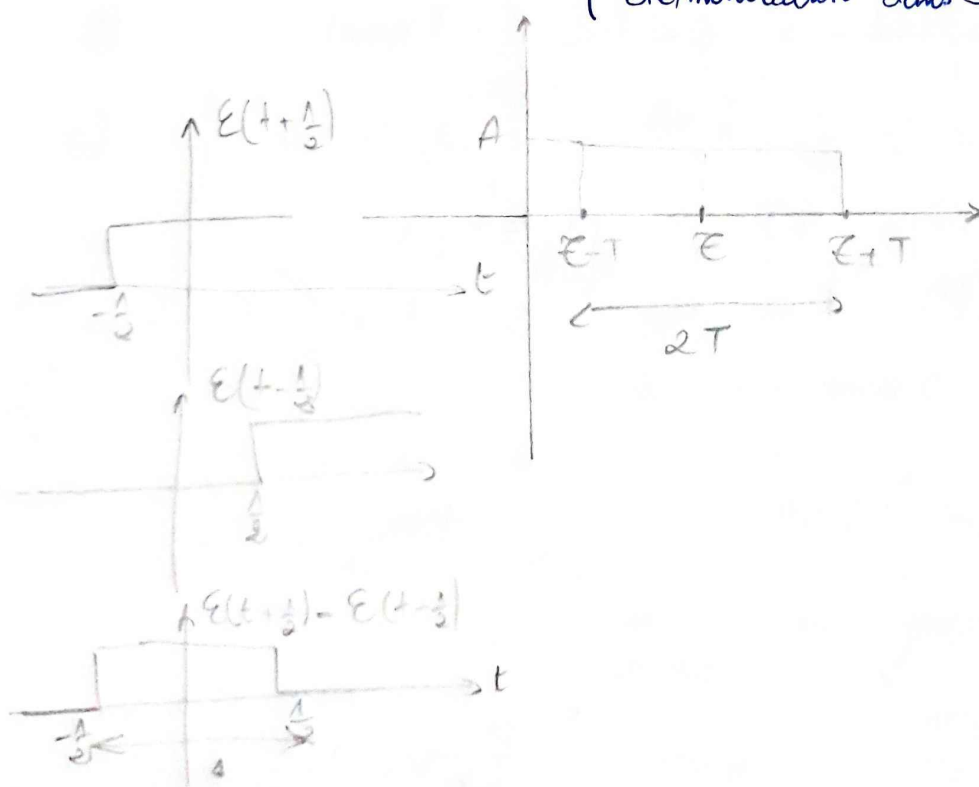 ε(t+1/2)
A
t
-1/2
τ-T τ τ+T
2T
ε(t-1/2)
1/2
ε(t+1/2) - ε(t-1/2)
t
-1/2 1/2
1